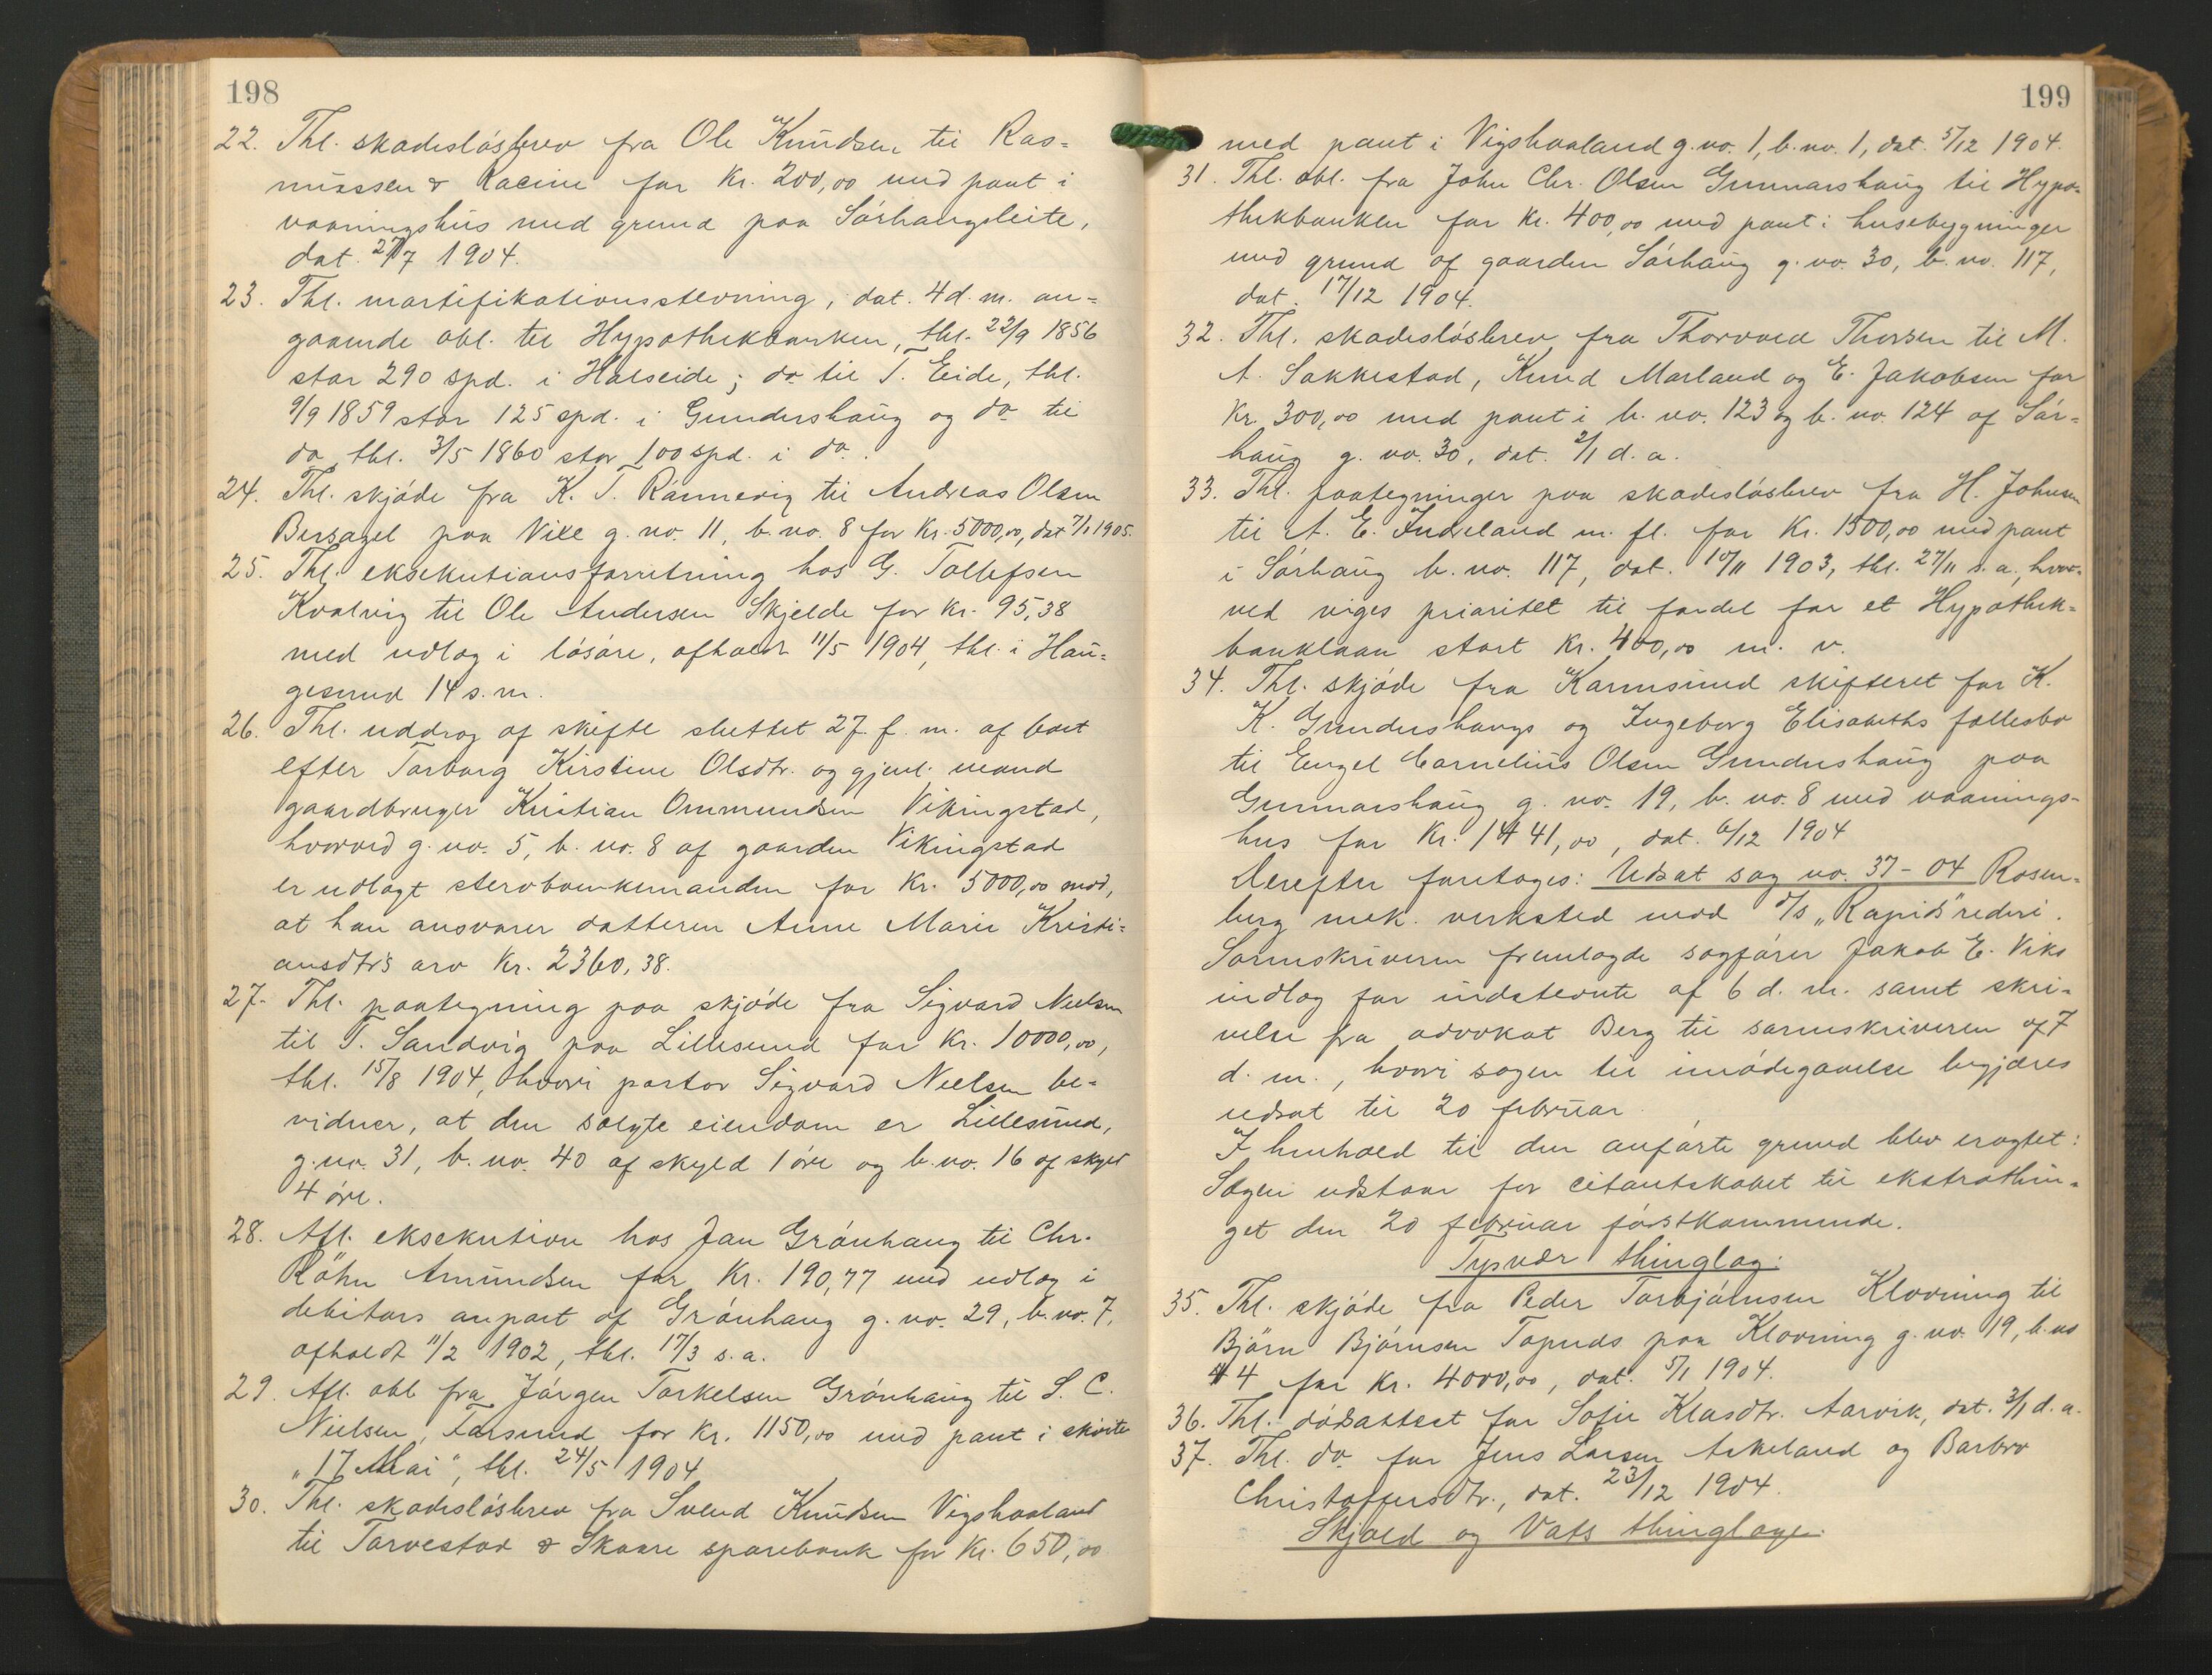 198
22. Thl. skadesløsbrev fra Ole Knudsen til Ras=
mussen & Racine for Kr. 200,00 med pant i
vaaningshus med grund paa Sørhaugsleite,
dat. 27/7 1904.
23. Thl. mortifikationsstevning, dat. 4 d. m. an=
gaaende obl. til Hypothekbanken, thl. 22/9 1856
stor 290 spd. i Halseide; do til T. Eide, thl.
9/9 1859 stor 125 spd. i Gundershaug og do til
do thl. 3/5 1860 stor 100 spd. i do.
24. Thl. skjøde fra K. T. Rønnevig til Andreas Olsen
Bersagel paa Vike g. no. 11, b. no. 8 for Kr. 5000,00, dat 7/1 1905.
25. Thl. eksekutionsforretning hos G. Tollefsen
Kvalvig til Ole Andersen Skjelde for Kr. 95,38
med udlæg i løsøre, afholdt 11/5 1904, thl. i Hau=
gesund 14 s. m.
26. Thl. uddrag af skifte sluttet 27 f. m. af boet
efter Torborg Kirstine Olsdtr. og gjenl. mand
gaardbruger Kristian Ommundsen Vikingstad,
hvorved g. no. 5, b. no. 8 af gaarden Vikingstad
er udlagt stervboenkemanden for Kr. 5000,00 mod,
at han ansvarer datteren Anne Marie Kristi=
ansdtr's arv Kr. 2360,38.
27. Thl. paategning paa skjøde fra Sigvard Nielsen
til T. Sandvig paa Lillesund for Kr. 10000,00,
thl. 15/8 1904, hvori pastor Sigvard Nielsen be=
vidner, at den solgte eiendom er Lillesund,
g. no. 31, b. no. 40 af skyld 1 øre og b. no. 16 af skyld
4 øre.
28. Afl. eksekution hos Jan Grønhaug til Chr.
Røhn Amundsen for Kr. 190,77 med udlæg i
debitors anpart af Grønhaug g. no. 29, b. no. 7,
afholdt 11/2 1902, thl. 17/3 s. a.
29. Afl. obl fra Jørgen Torkelsen Grønhaug til S. C.
Nielsen, Farsund for Kr. 1150,00 med pant i skøite
"17 Mai", thl. 24/5 1904
30. Thl. skadesløsbrev fra Svend Knudsen Vigshaaland
til Torvestad & Skaare sparebank for Kr. 650,00
199
med pant i Vigshaaland g. no. 1, b. no. 1, dat. 5/12 1904.
31. Thl. obl. fra John Chr. Olsen Gunnarshaug til Hypo=
thekbanken for Kr. 400,00 med pant i husebygninger
med grund af gaarden Sørhaug g. no. 30, b. no. 117,
dat. 17/12 1904.
32. Thl. skadesløsbrev fra Thorvald Thorsen til M.
A. Sakkestad, Knud Marland og E. Jakobsen for
Kr. 300,00 med pant i b. no. 123 og b. no. 124 af Sør=
haug g. no. 30, dat. 2/1 d. a.
33. Thl. paategninger paa skadesløsbrev fra H. Johnsen
til A. E. Indreland m. fl. for Kr. 1500,00 med pant
i Sørhaug b. no. 117, dat. 10/11 1903, thl. 27/11 s. a., hvor=
ved viges prioritet til fordel for et Hypothek=
banklaan stort Kr. 400,00 m. v.
34. Thl. skjøde fra Karmsund skifteret for K.
K. Gundershaugs og Ingeborg Elisabeths fællesbo
til Engel Cornelius Olsen Gundershaug paa
Gunnarshaug g. no. 19, b. no. 8 med vaanings=
hus for Kr. 1441,00, dat. 6/12 1904
Derefter foretoges: Udsat sag no. 37-04 Rosen=
berg mek. verksted mod d/s "Rapid" rederi.
Sorenskriveren fremlagde sagfører Jakob E. Viks
indlæg for indstevnte af 6 d. m. samt skri=
velse fra advokat Berg til sorenskriveren af 7
d. m., hvori sagen til imødegaaelse begjæres
udsat til 20 februar.
I henhold til den anførte grund blev eragtet:
Sagen udstaar for citantskabet til ekstrathin=
get den 20 februar førstkommende.
Tysvær thinglag:
35. Thl. skjøde fra Peder Torbjørnsen Klovning til
Bjørn Bjørnsen Topnæs paa Klovning g. no. 19, b. no
4 for Kr. 4000,00, dat. 5/1 1904.
36. Thl. dødsattest for Sofie Klasdtr. Aarvik, dat. 3/1 d. a.
37. Thl. do for Jens Larsen Askeland og Barbro
Christoffersdtr., dat. 23/12 1904.
Skjold og Vats thinglage.